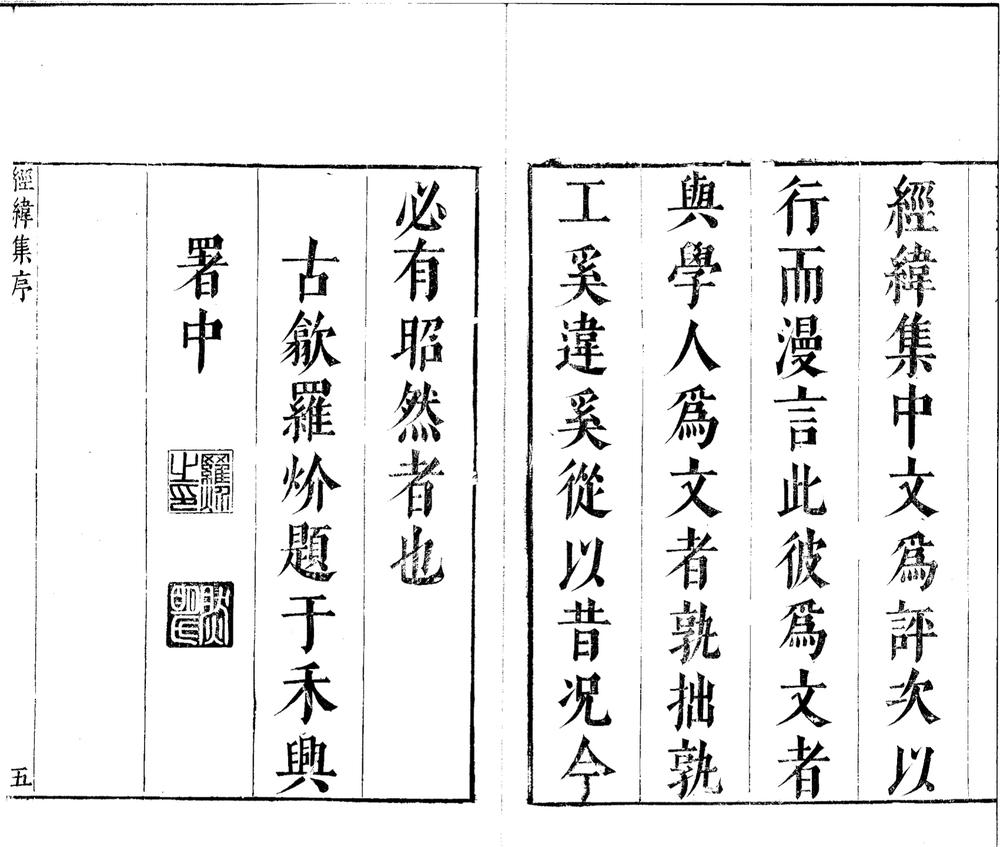 經緯集中文爲評次以
行而漫言此彼爲文者
與學人爲文者孰拙孰
工奚違奚從以昔况今
必有昭然者也
古歙羅炌題于禾興
署中
羅炌之印
經緯集序
五